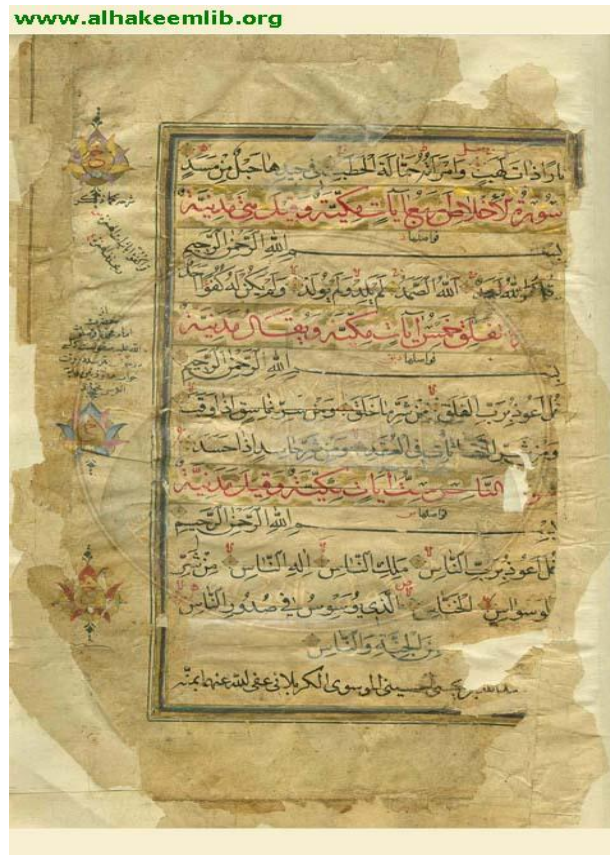 www.alhakeemlib.org
نارا ذات لهب وامرأته حمالة الحطب في جيدها حبل من مسد
سورة الاخلاص اربع آيات مكية وقيل هي مدنية
فواصلها د
بسم الله الرحمن الرحيم
قل هو الله احد الله الصمد لم يلد ولم يولد ولم يكن له كفوا احد
الفلق خمس آيات مكية ويقال مدنية
فواصلها
بسم الله الرحمن الرحيم
قل اعوذ برب الفلق من شر ما خلق ومن شر غاسق اذا وقب
ومن شر النفاثات في العقد ومن شر حاسد اذا حسد
الناس ست آيات مكية وقيل مدنية
فواصلها س
بسم الله الرحمن الرحيم
قل اعوذ برب الناس ملك الناس اله الناس من شر
الوسواس الخناس الذي يوسوس في صدور الناس
من الجنة والناس
الحسيني الموسوي الكربلائي عفى الله عنهما بمنه